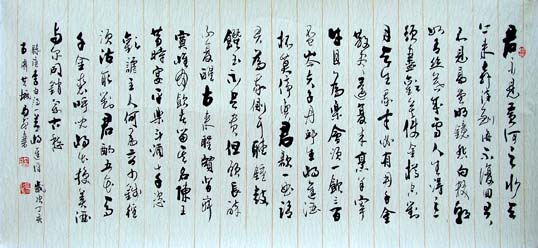 君不見黃河之水天
上來奔流到海不復回君
不見高堂明鏡悲白髮朝
如青絲暮成雪人生得意
須盡歡莫使金樽空對
月天生我材必有用千金
散盡還復來烹羊宰
牛且為樂會須一飲三百
杯岑夫子丹邱生將進酒
杯莫停與君歌一曲請
君為我側耳聽鐘鼓
饌玉不足貴但願長醉
不復醒古來聖賢皆寂
寞惟有飲者留其名陳王
昔時宴平樂斗酒十千恣
歡謔主人何為言少錢徑
須沽取對君酌五花馬
千金裘呼兒將出換美酒
與爾同銷萬古愁
錄唐李白詩一首將進酒 歲次丁亥